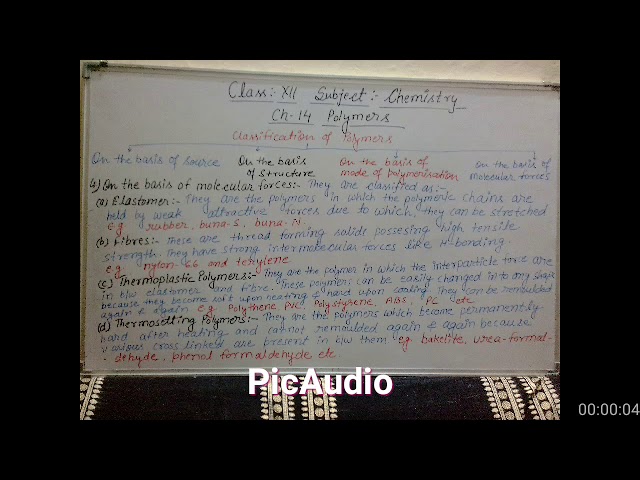 Class:- XII Subject:- Chemistry
Ch-14 Polymers
Classification of Polymers
On the basis of source On the basis of structure On the basis of mode of polymerisation On the basis of molecular forces
4) On the basis of molecular forces:- They are classified as:-
(a) Elastomer:- They are the polymers in which the polymeric chains are
held by weak attractive forces due to which they can be stretched
E.g rubber, buna-S, buna-N.
(b) Fibres:- These are thread forming solids possesing high tensile
strength. They have strong intermolecular forces like H-bonding.
e.g. nylon-66 and terylene
(c) Thermoplastic Polymers:- They are the polymer in which the interparticle force are
in b/w elastomer and fibre. These polymers can be easily changed into any shape
because they become soft upon heating & hard upon cooling. They can be remoulded
again & again e.g. Polythene PVC, Polystyrene, ABS, PC etc
(d) Thermosetting Polymers:- They are the polymers which become permanently
hard after heating and cannot remoulded again & again because
various cross linked are present in b/w them e.g. bakelite, urea-formal-
dehyde, phenol formaldehyde etc.
PicAudio
00:00:04